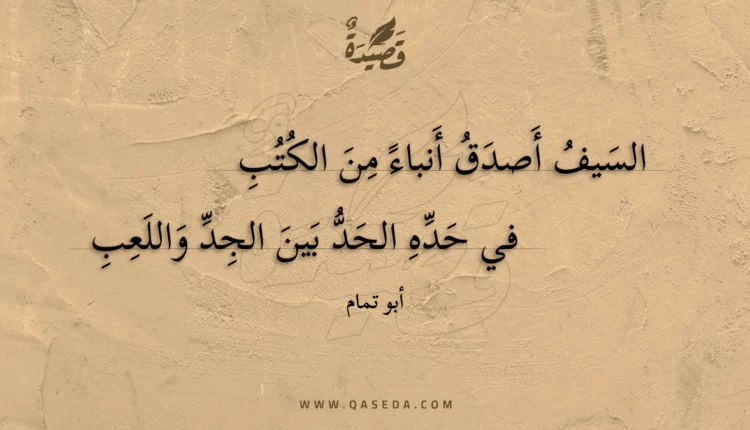 قَصِيدَةٌ
السَيفُ أَصدَقُ أَنباءً مِنَ الكُتُبِ
في حَدِّهِ الحَدُّ بَينَ الجِدِّ وَاللَعِبِ
أبو تمام
WWW.QASEDA.COM